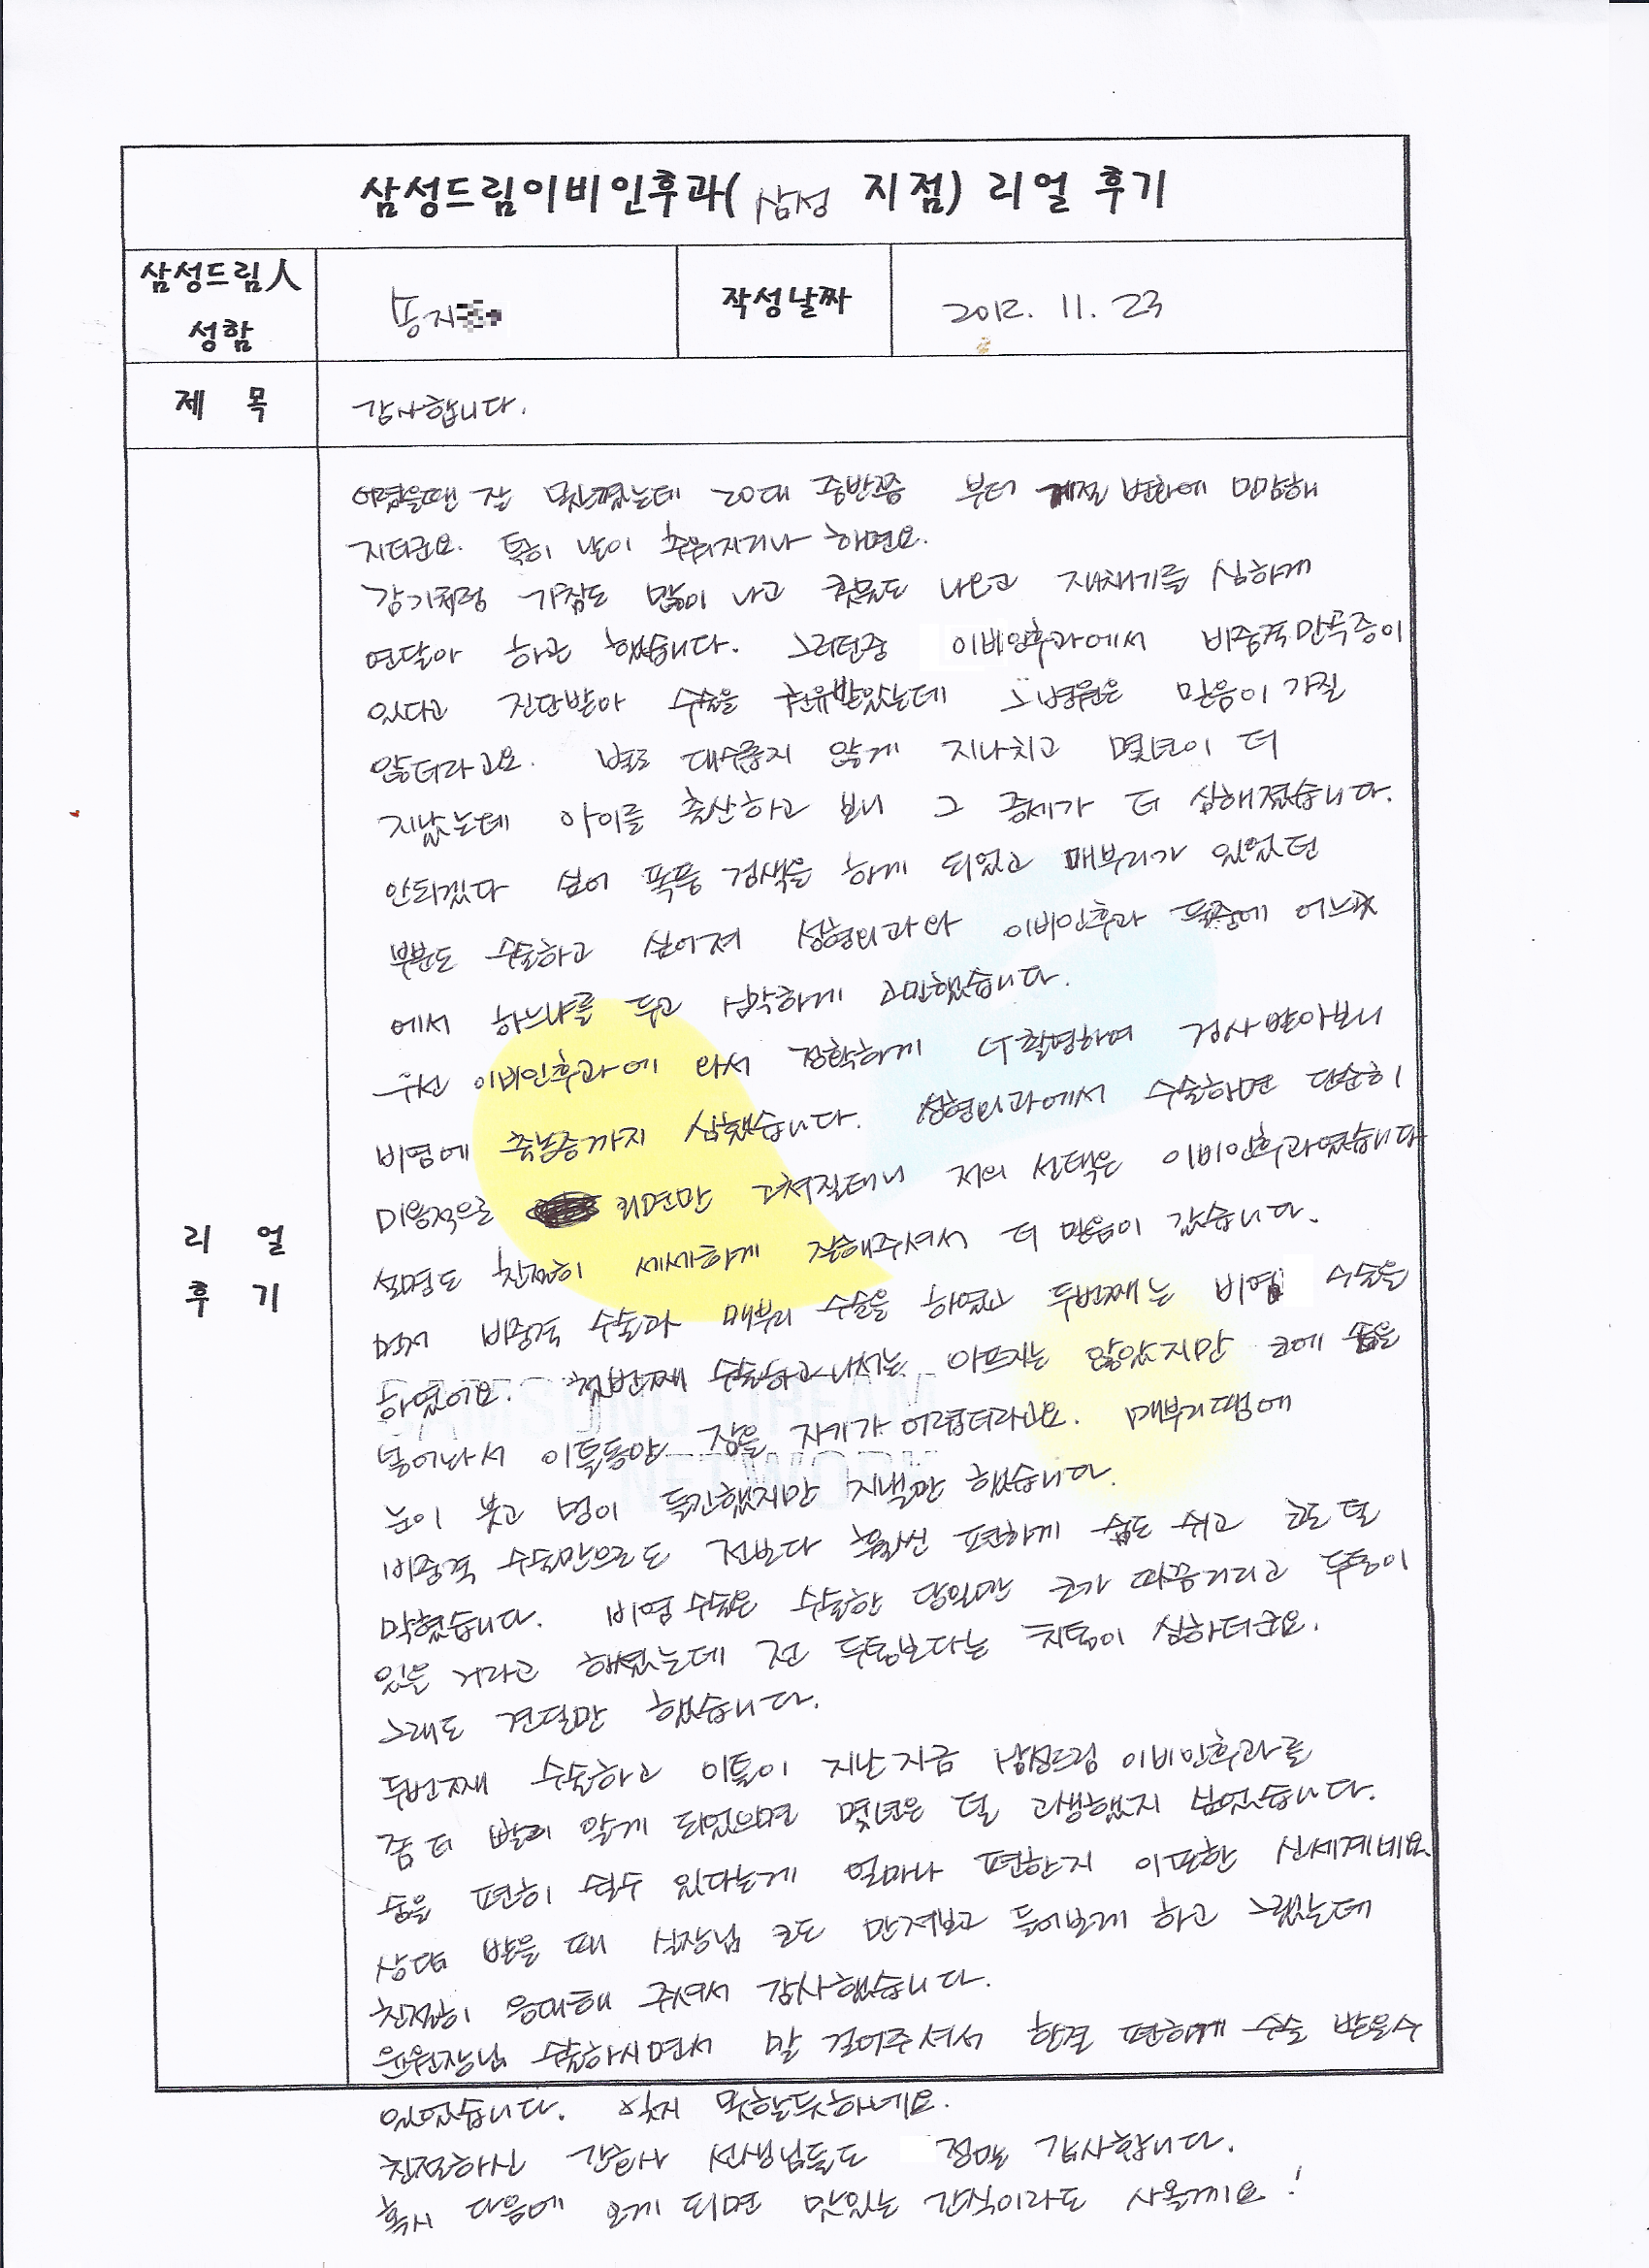 삼성드림이비인후과( 삼성 지점) 리얼 후기
삼성드림人 성함
송지
작성날짜
2012. 11. 23
제 목
감사합니다.
리 얼 후 기
어렸을땐 잘 못느꼈는데 20대 중반쯤 부터 계절 변화에 민감해
지더군요. 특히 날이 추워지거나 하면요.
감기처럼 기침도 많이 나고 콧물도 나오고 재채기를 심하게
연달아 하곤 했습니다. 그러던중 이비인후과에서 비중격만곡증이
있다고 진단받아 수술을 권유받았는데 그병원은 믿음이 가질
않더라고요. 별로 대수롭지 않게 지나치고 몇년이 더
지났는데 아이를 출산하고 보니 그 증세가 더 심해졌습니다.
안되겠다 싶어 폭풍 검색을 하게 되었고 매부리가 있었던
부분도 수술하고 싶어져 성형외과와 이비인후과 둘중에 어느곳
에서 하느냐를 두고 심각하게 고민했습니다.
우선 이비인후과에 와서 정확하게 CT촬영하여 검사받아보니
비염에 축농증까지 심했습니다. 성형외과에서 수술하면 단순히
미용적으로 외면만 고쳐질테니 저의 선택은 이비인후과였습니다
설명도 친절히 세세하게 잘해주셔서 더 믿음이 갔습니다.
먼저 비중격 수술과 매부리 수술을 하였고 두번째는 비염 수술을
하였어요. 첫번째 수술하고나서는 아프지는 않았지만 코에 솜을
넣어놔서 이틀동안 잠을 자기가 어렵더라고요. 매부리땜에
눈이 붓고 멍이 들긴했지만 지낼만 했습니다.
비중격 수술만으로도 전보다 훨씬 편하게 숨도 쉬고 코도 덜
막혔습니다. 비염수술은 수술한 당일만 코가 따끔거리고 두통이
있을 거라고 하셨는데 전 두통보다는 치통이 심하더군요.
그래도 견딜만 했습니다.
두번째 수술하고 이틀이 지난지금 삼성드림 이비인후과를
좀 더 빨리 알게 되었으면 몇년은 덜 고생했지 싶었습니다.
숨을 편히 쉴수 있다는게 얼마나 편한지 이또한 신세계네요
상담 받을 때 실장님 코도 만져보고 들어보게 하고 그랬는데
친절히 응대해 주셔서 감사했습니다.
윤원장님 수술하시면서 말 걸어주셔서 한결 편하게 수술 받을수
있었습니다. 잊지 못할듯하네요.
친절하신 간호사 선생님들도 정말 감사합니다.
혹시 다음에 오게 되면 맛있는 간식이라도 사올께요!
SAMSUNG DREAM
NETWORK